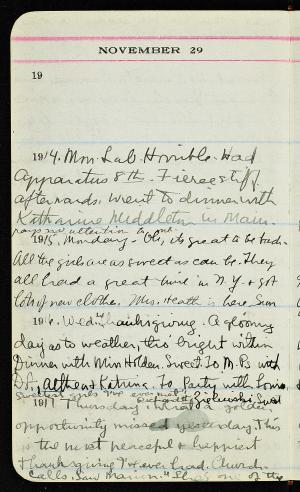 NOVEMBER 29
19
1914. Mon. Lab. Horrible. Had
Apparatus 8th. Fierce stiff
afterwards. Went to dinner with
Katharine Middleton in Main.
pays no attention to me.
1915. Monday - Oh, it's great to be back.
All the girls are as sweet as can be. They
all had a great time in N.Y. & got
lots of new clothes. Mrs. Heath is here. Sun
1916. Wed. Thanksgiving. A gloomy
day as to weather, tho' bright within
Dinner with Miss Holden. Sweet. To M.P.s with
Dot, Althea & Katrina. To party with
Sweetest girls I've ever met.
1917 Thursday What a golden
opportunity missed yesterday. This
is the most peaceful & happiest
Thanksgiving I've ever had. Church.
Calls. Saw Marion. "She's one of the